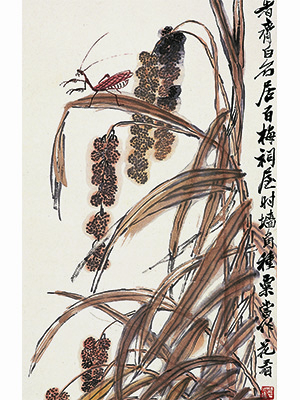 者齊白石居百梅祠屋時墙角種粟當作花看